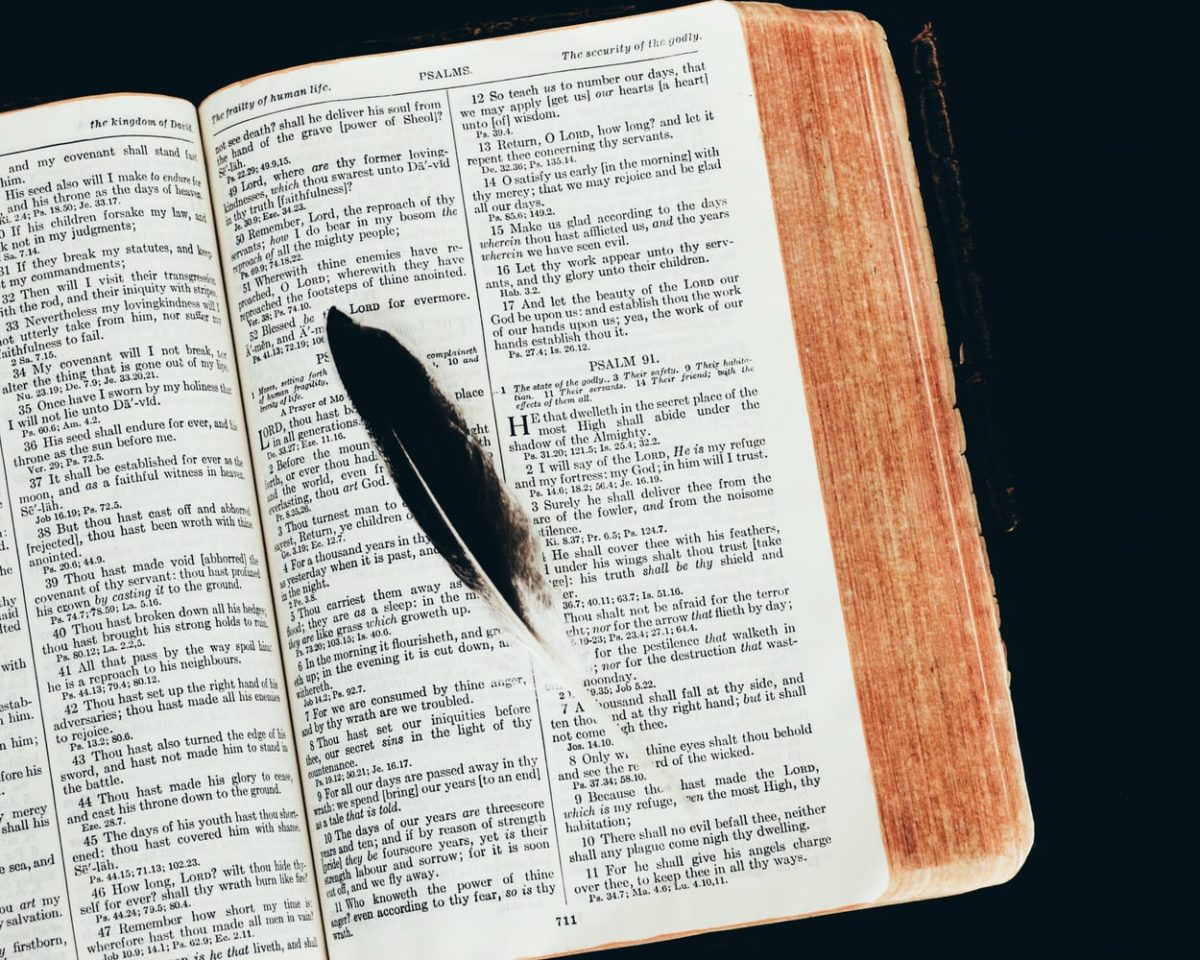 with
him.
him;
his
mercy
shall his
sea, and
art my
salvation.
firstborn,
the kingdom of David.
and my covenant shall stand fast
him.
His seed also will I make to endure for
and his throne as the days of heaven.
Ki. 2.4; Ps. 18.50; Je. 33.17.
If his children forsake my law, and
not in my judgments;
Sa. 7.14.
31 If they break my statutes, and keep
my commandments;
32 Then will I visit their transgression
with the rod, and their iniquity with stripes.
33 Nevertheless my lovingkindness will I
not utterly take from him, nor suffer my
faithfulness to fail.
2 Sa. 7.15.
34 My covenant will I not break, nor
alter the thing that is gone out of my lips.
Nu. 23.19; De. 7.9; Je. 33.20,21.
35 Once have I sworn by my holiness that
I will not lie unto Dā'-vid.
Ps. 60.6; Am. 4.2.
36 His seed shall endure for ever, and his
throne as the sun before me.
Ver. 29; Ps. 72.5.
37 It shall be established for ever as the
moon, and as a faithful witness in heaven.
Sē'-läh.
Job 16.19; Ps. 72.5.
38 But thou hast cast off and abhorred
[rejected], thou hast been wroth with thine
anointed.
Ps. 20.6; 44.9.
39 Thou hast made void [abhorred] the
covenant of thy servant: thou hast profaned
his crown by casting it to the ground.
Ps. 74.7; 78.59; La. 5.16.
40 Thou hast broken down all his hedges;
thou hast brought his strong holds to ruin.
Ps. 80.12; La. 2.2,5.
41 All that pass by the way spoil him:
he is a reproach to his neighbours.
Ps. 44.13; 79.4; 80.12.
42 Thou hast set up the right hand of his
adversaries; thou hast made all his enemies
to rejoice.
Ps. 13.2; 80.6.
43 Thou hast also turned the edge of his
sword, and hast not made him to stand in
the battle.
44 Thou hast made his glory to cease,
and cast his throne down to the ground.
Eze. 28.7.
45 The days of his youth hast thou short-
ened: thou hast covered him with shame.
Sē'-läh.
Ps. 44.15; 71.13; 102.23.
46 How long, LORD? wilt thou hide thy-
self for ever? shall thy wrath burn like fire?
Ps. 44.24; 79.5; 80.4.
47 Remember how short my time is:
wherefore hast thou made all men in vain?
Job 10.9; 14.1; Ps. 62.9; Ec. 2.11.
is he that liveth, and shall
The frailty of human life.
PSALMS.
The security of the godly.
not see death? shall he deliver his soul from
the hand of the grave [power of Sheol]?
Sē'-läh.
Ps. 22.29; 49.9,15.
49 Lord, where are thy former loving-
kindnesses, which thou swarest unto Dā'-vid
in thy truth [faithfulness]?
Je. 30.9; Eze. 34.23.
50 Remember, Lord, the reproach of thy
servants; how I do bear in my bosom the
reproach of all the mighty people;
Ps. 69.9; 74.18,22.
51 Wherewith thine enemies have re-
proached, O LORD; wherewith they have
reproached the footsteps of thine anointed.
Ver. 38; Ps. 74.10.
52 Blessed be LORD for evermore.
Ä'-mĕn, and
Ps. 41.13; 72.19;
1 Moses, setting forth complaineth
of human fragility, 10 and
brevity of life.
A Prayer of place
LORD, thou hast
in all generations.
De. 33.27; Eze. 11.16.
2 Before the
forth, or ever thou had
and the world, even
everlasting, thou art God.
Pr. 8.25,26.
3 Thou turnest man to
sayest, Return, ye children
Ge. 3.19; Ec. 12.7.
4 For a thousand years in thy
as yesterday when it is past, and
in the night.
2 Pe. 3.8.
5 Thou carriest them away as
flood; they are as a sleep: in the
they are like grass which groweth up.
Ps. 73.20; 103.15; Is. 40.6.
6 In the morning it flourisheth, and
eth up; in the evening it is cut down,
withereth.
Job 14.2; Ps. 92.7.
7 For we are consumed by thine anger,
and by thy wrath are we troubled.
8 Thou hast set our iniquities before
thee, our secret sins in the light of thy
countenance.
Ps. 19.12; 50.21; Je. 16.17.
9 For all our days are passed away in thy
wrath: we spend [bring] our years [to an end]
as a tale that is told.
10 The days of our years are threescore
years and ten; and if by reason of strength
[pride] they be fourscore years, yet is their
strength labour and sorrow; for it is soon
cut off, and we fly away.
11 Who knoweth the power of thine
anger? even according to thy fear, so is thy
wrath.
12 So teach us to number our days, that
we may apply [get us] our hearts [a heart]
unto [of] wisdom.
Ps. 39.4.
13 Return, O LORD, how long? and let it
repent thee concerning thy servants.
De. 32.36; Ps. 135.14.
14 O satisfy us early [in the morning] with
thy mercy; that we may rejoice and be glad
all our days.
Ps. 85.6; 149.2.
15 Make us glad according to the days
wherein thou hast afflicted us, and the years
wherein we have seen evil.
16 Let thy work appear unto thy serv-
ants, and thy glory unto their children.
Hab. 3.2.
17 And let the beauty of the LORD our
God be upon us: and establish thou the work
of our hands upon us; yea, the work of our
hands establish thou it.
Ps. 27.4; Is. 26.12.
PSALM 91.
1 The state of the godly. 3 Their safety. 9 Their habita-
tion. 11 Their servants. 14 Their friend; with the
effects of them all.
HE that dwelleth in the secret place of the
most High shall abide under the
shadow of the Almighty.
Ps. 31.20; 121.5; Is. 25.4; 32.2.
2 I will say of the LORD, He is my refuge
and my fortress: my God; in him will I trust.
Ps. 14.6; 18.2; 56.4; Je. 16.19.
3 Surely he shall deliver thee from the
of the fowler, and from the noisome
Ki. 8.37; Pr. 6.5; Ps. 124.7.
He shall cover thee with his feathers,
under his wings shalt thou trust [take
his truth shall be thy shield and
36.7; 40.11; 63.7; Is. 51.16.
Thou shalt not be afraid for the terror
nor for the arrow that flieth by day;
19-23; Ps. 23.4; 27.1; 64.4.
for the pestilence that walketh in
nor for the destruction that wast-
noonday.
Job 5.22.
7 A thousand shall fall at thy side, and
ten at thy right hand; but it shall
not come thee.
Jos. 14.10.
8 Only thine eyes shalt thou behold
and see the of the wicked.
Ps. 37.34; 58.10.
9 Because hast made the LORD,
which is my refuge, the most High, thy
habitation;
10 There shall no evil befall thee, neither
shall any plague come nigh thy dwelling.
11 For he shall give his angels charge
over thee, to keep thee in all thy ways.
Ps. 34.7; Ma. 4.6; Lu. 4.10,11.
711